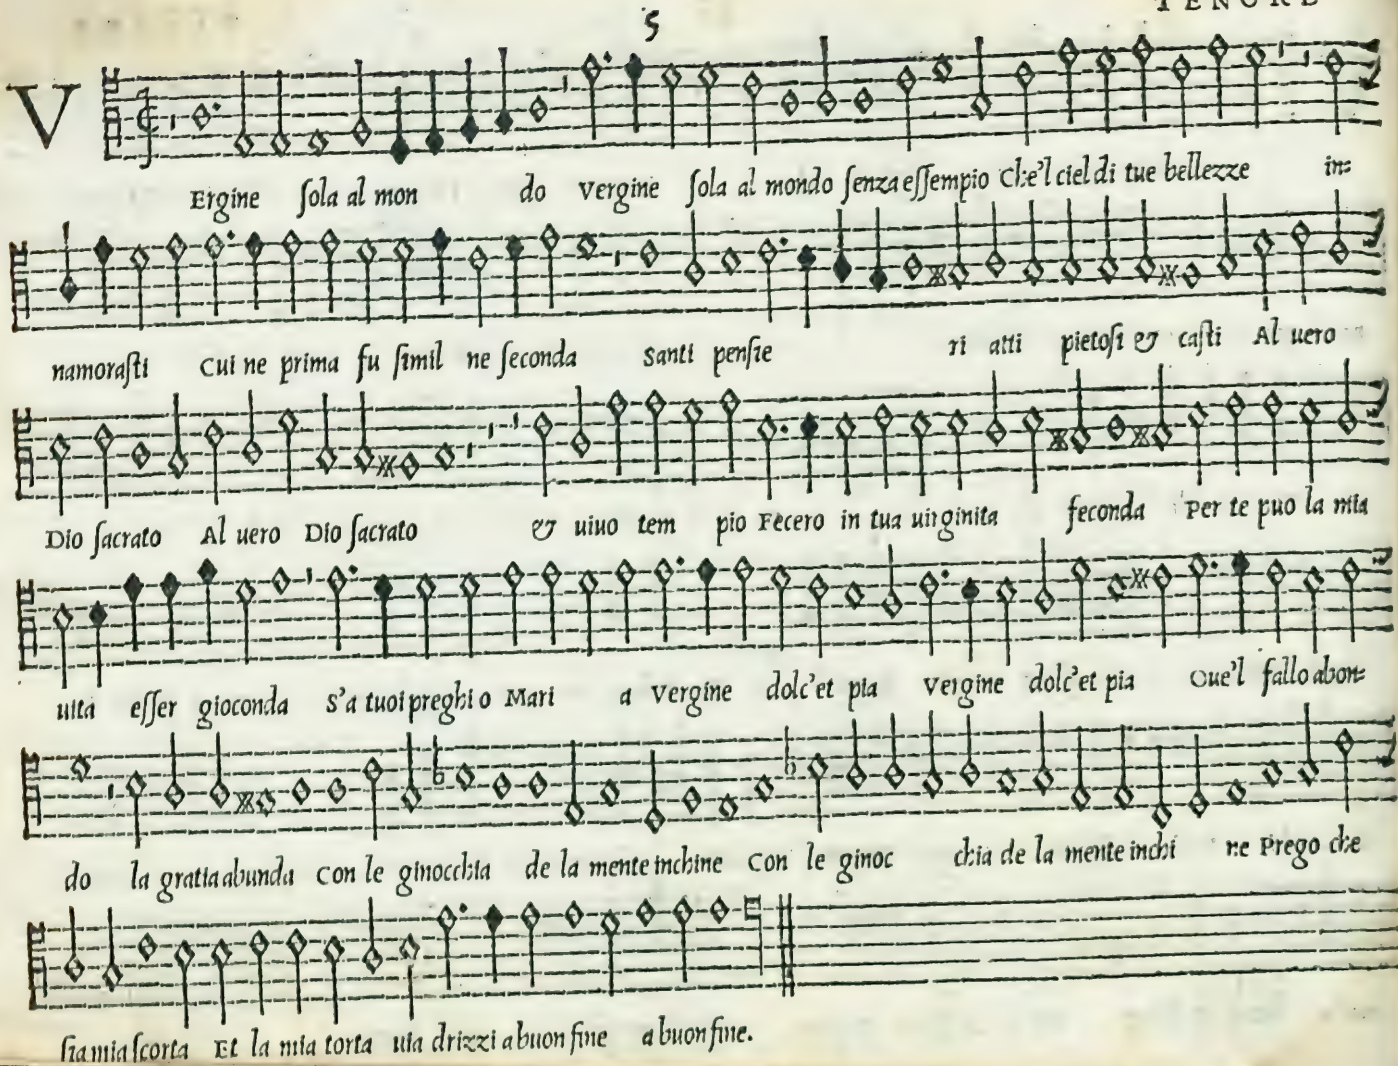 TENORE
5
VErgine ſola al mon do vergine ſola al mondo ſenza eſſempio Che'l ciel di tue bellezze in=
namoraſti Cui ne prima fu ſimil ne ſeconda Santi penſie ri atti pietoſi & caſti Al uero
Dio ſacrato Al uero Dio ſacrato & uiuo tem pio Fecero in tua uirginita feconda Per te puo la mia
uita eſſer gioconda S'a tuoi preghi o Mari a Vergine dolc'et pia Vergine dolc'et pia Oue'l fallo abon=
do la gratia abunda Con le ginocchia de la mente inchine Con le ginoc chia de la mente inchi ne Prego che
ſia mia ſcorta Et la mia torta uia drizzi a buon fine a buon fine.